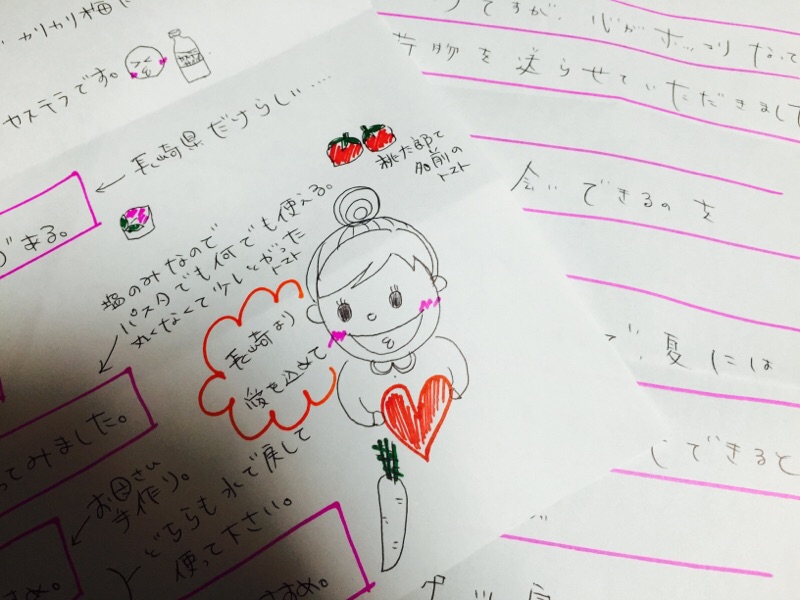 カリカリ梅
カステラです。
長崎県だけらしい....
がある。
桃太郎て
名前の
トマト
塩のみなので
パスタでも何でも使える。
丸くなくて少しとがった
トマト
長崎より
愛を込めて
ってみました。
お母さん
手作り。
どちらも水で戻して
使って下さい。
すめ。
すすめ。
ですが、心がホッコリなって
荷物を送らせていただきまし
会いできるのを
で、夏には
しできると